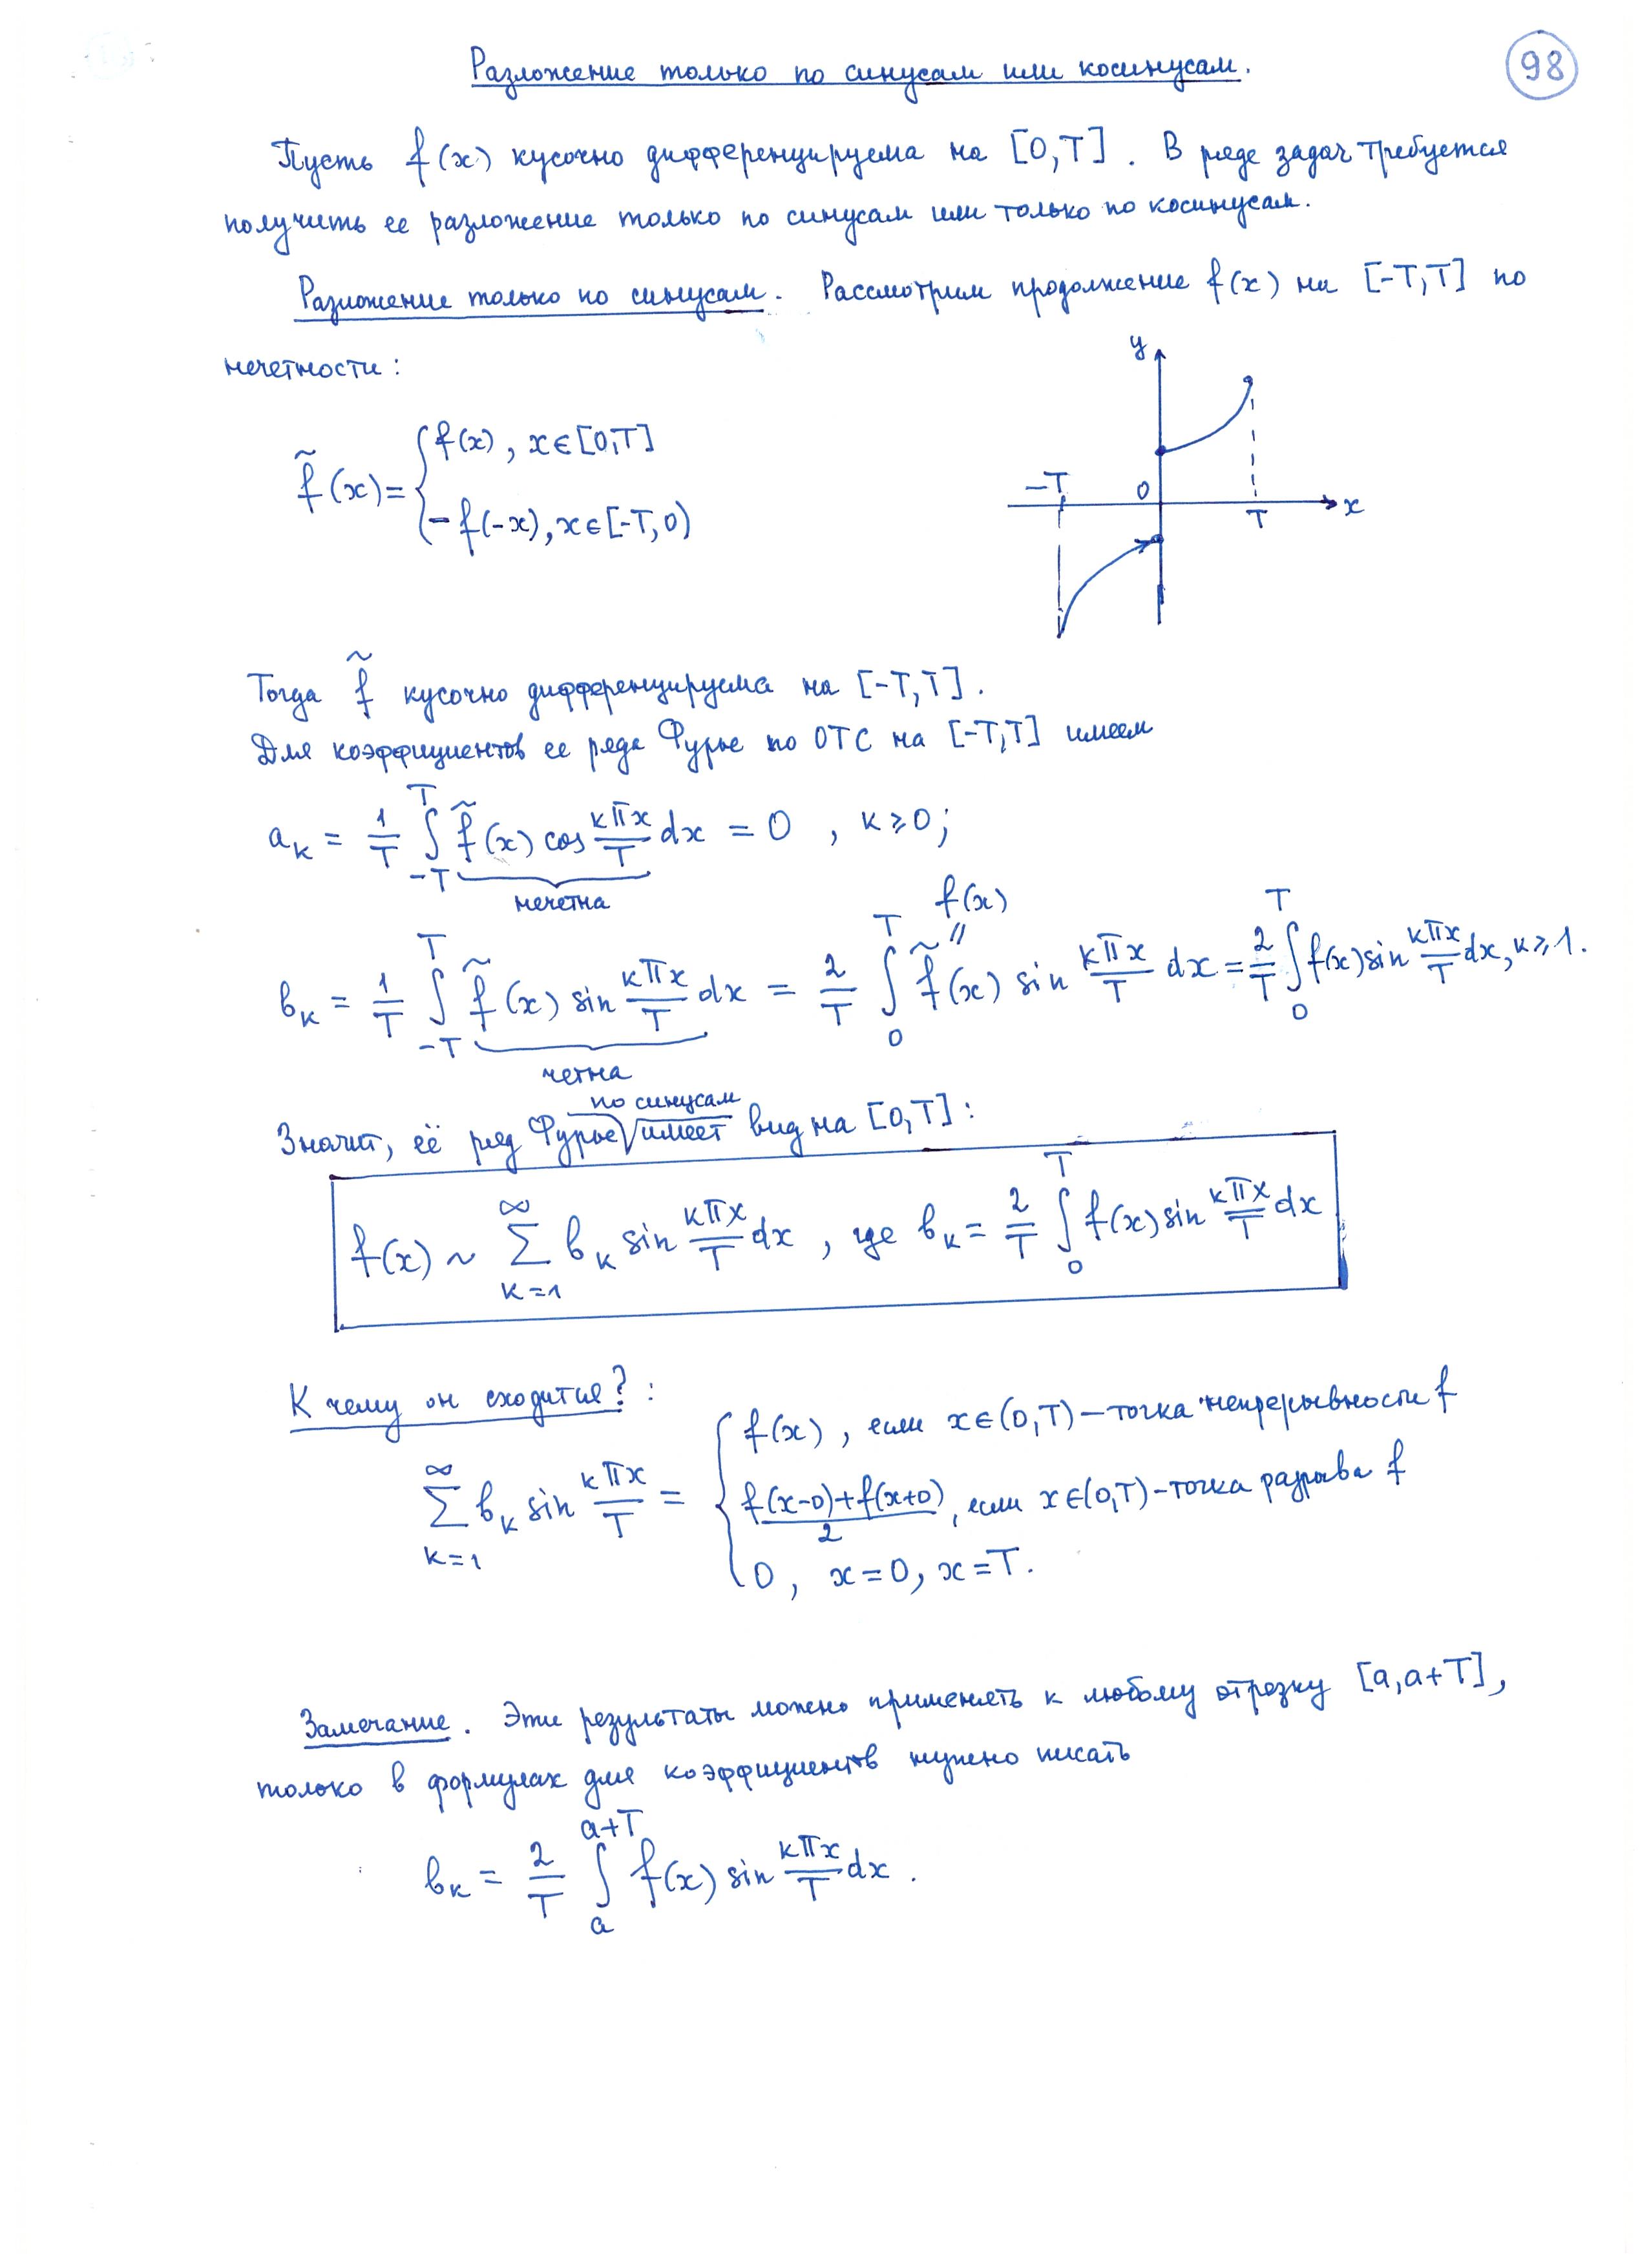 98
Разложение только по синусам или косинусам.
Пусть f(x) кусочно дифференцируема на [0,T]. В ряде задач требуется
получить ее разложение только по синусам или только по косинусам.
Разложение только по синусам. Рассмотрим продолжение f(x) на [-T,T] по
нечетности:
f̃(x) = { f(x), x∈[0,T]
-f(-x), x∈[-T,0)
y
-T 0 T x
Тогда f̃ кусочно дифференцируема на [-T,T].
Для коэффициентов ее ряда Фурье по ОТС на [-T,T] имеем
aₖ = 1/T ∫_{-T}^{T} f̃(x) cos kπx/T dx = 0, k≥0;
нечетна
f(x)
"
bₖ = 1/T ∫_{-T}^{T} f̃(x) sin kπx/T dx = 2/T ∫_0^T f̃(x) sin kπx/T dx = 2/T ∫_0^T f(x) sin kπx/T dx, k≥1.
четна
по синусам
Значит, её ряд Фурье √ имеет вид на [0,T]:
f(x) ~ ∑_{k=1}^{∞} bₖ sin kπx/T dx, где bₖ = 2/T ∫_0^T f(x) sin kπx/T dx
К чему он сходится?:
∑_{k=1}^{∞} bₖ sin kπx/T = { f(x), если x∈(0,T) – точка непрерывности f
(f(x-0)+f(x+0))/2, если x∈(0,T) – точка разрыва f
0, x=0, x=T.
Замечание. Эти результаты можно применять к любому отрезку [a,a+T],
только в формулах для коэффициентов нужно писать
bₖ = 2/T ∫_a^{a+T} f(x) sin kπx/T dx.